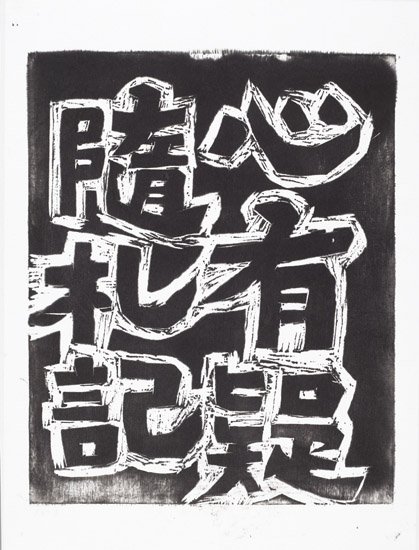 心有疑
隨札記